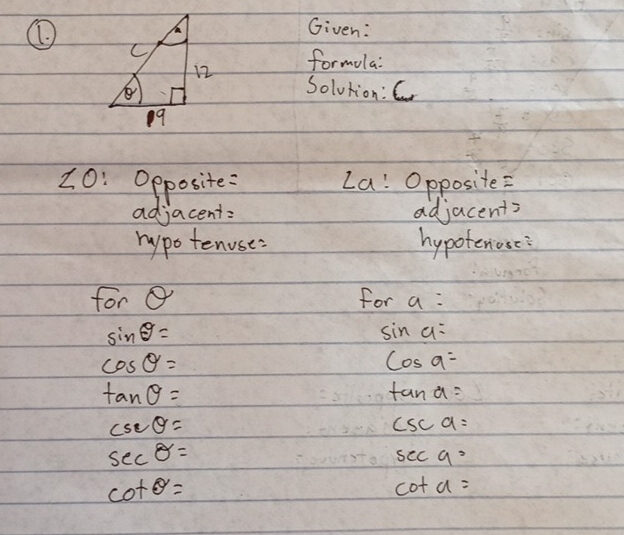 1.
a
C
12
θ
9
Given:
formula:
Solution: C
∠θ: Opposite=
adjacent=
hypotenuse=
∠a: Opposite=
adjacent=
hypotenuse=
for θ
sin θ=
cos θ=
tan θ=
csc θ=
sec θ=
cot θ=
for a:
sin a=
cos a=
tan a=
csc a=
sec a=
cot a=